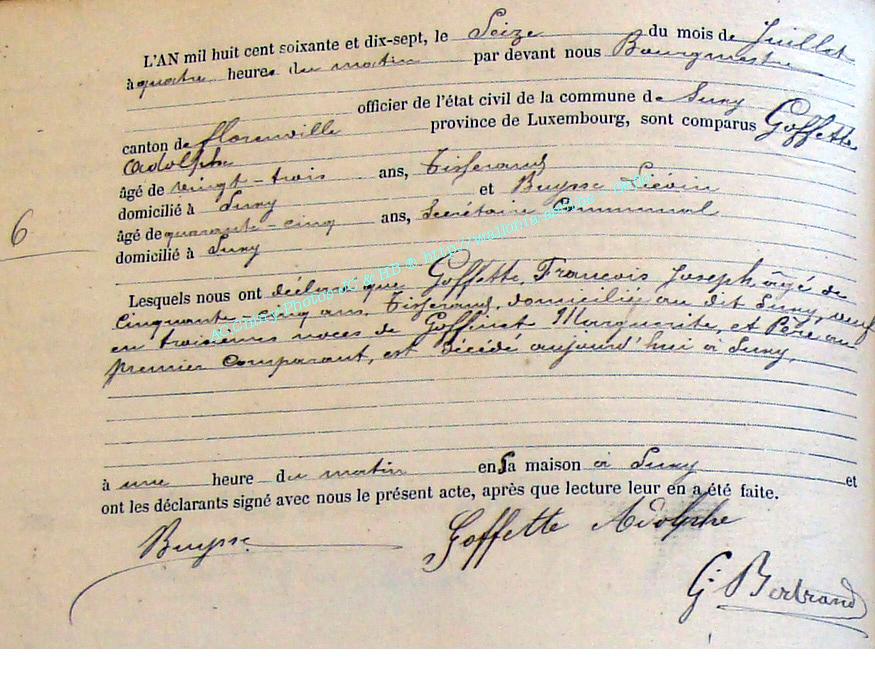 L'AN mil huit cent soixante et dix-sept, le Seize du mois de Juillet
à quatre heures du matin par devant nous Bourgmestre
officier de l'état civil de la commune de Suxy
canton de florenville province de Luxembourg, sont comparus Goffette
Adolphe
âgé de vingt-trois ans, Tisserand
domicilié à Suxy et Buysse Liévin
âgé de quarante-cinq ans, Secrétaire Communal
domicilié à Suxy
6
Lesquels nous ont déclaré que Goffette, Francois Joseph âgé de
Cinquante-cinq ans, Tisserand, domicilié au dit Suxy, veuf
en troisièmes noces de Goffinet Marguerite, et Père au
premier Comparant, est Décédé aujourd'hui à Suxy
à une heure du matin en sa maison à Suxy et
ont les déclarants signé avec nous le présent acte, après que lecture leur en a été faite.
Buysse Goffette Adolphe
G. Bertrand